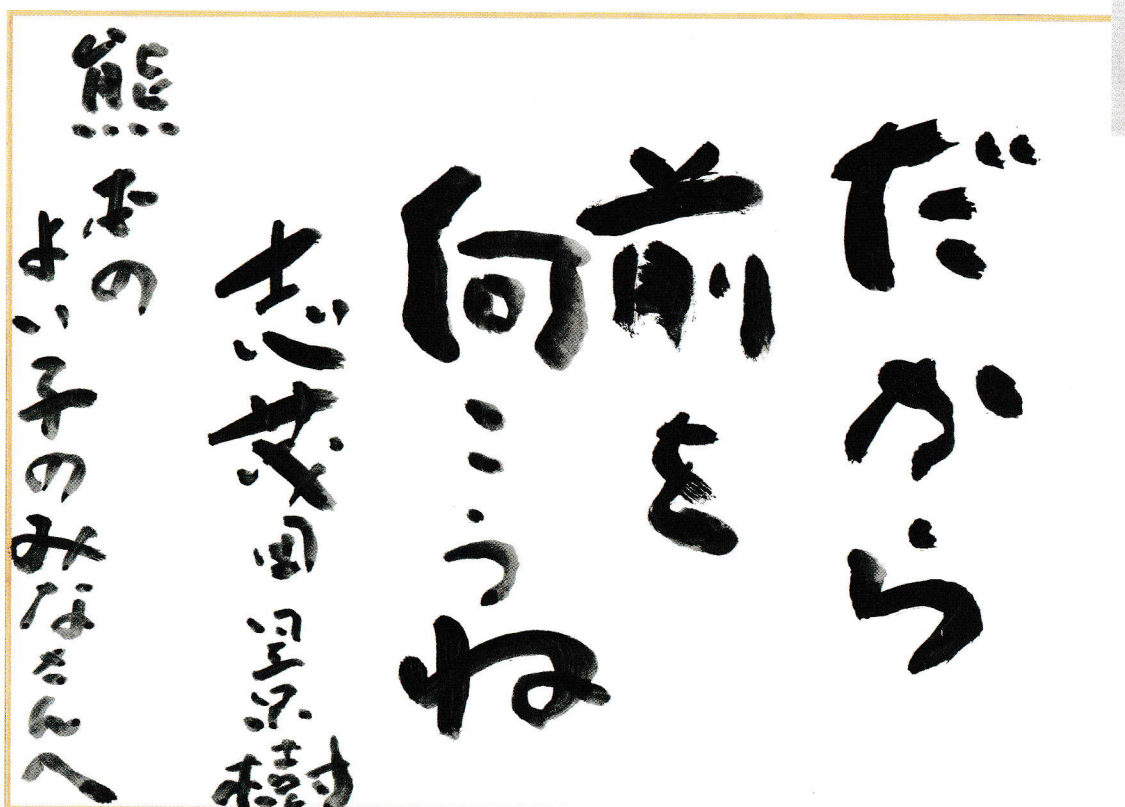 だから
前を
向こうね
志茂田景樹
熊本の
よい子のみなさんへ